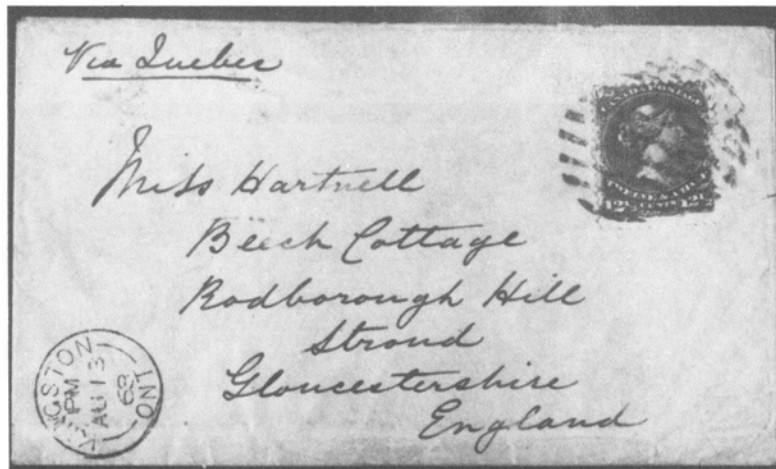 Via Quebec
Miss Hartnell
Beech Cottage
Rodborough Hill
Stroud
Gloucestershire
England
KINGSTON ONT
PM
AU 13
68